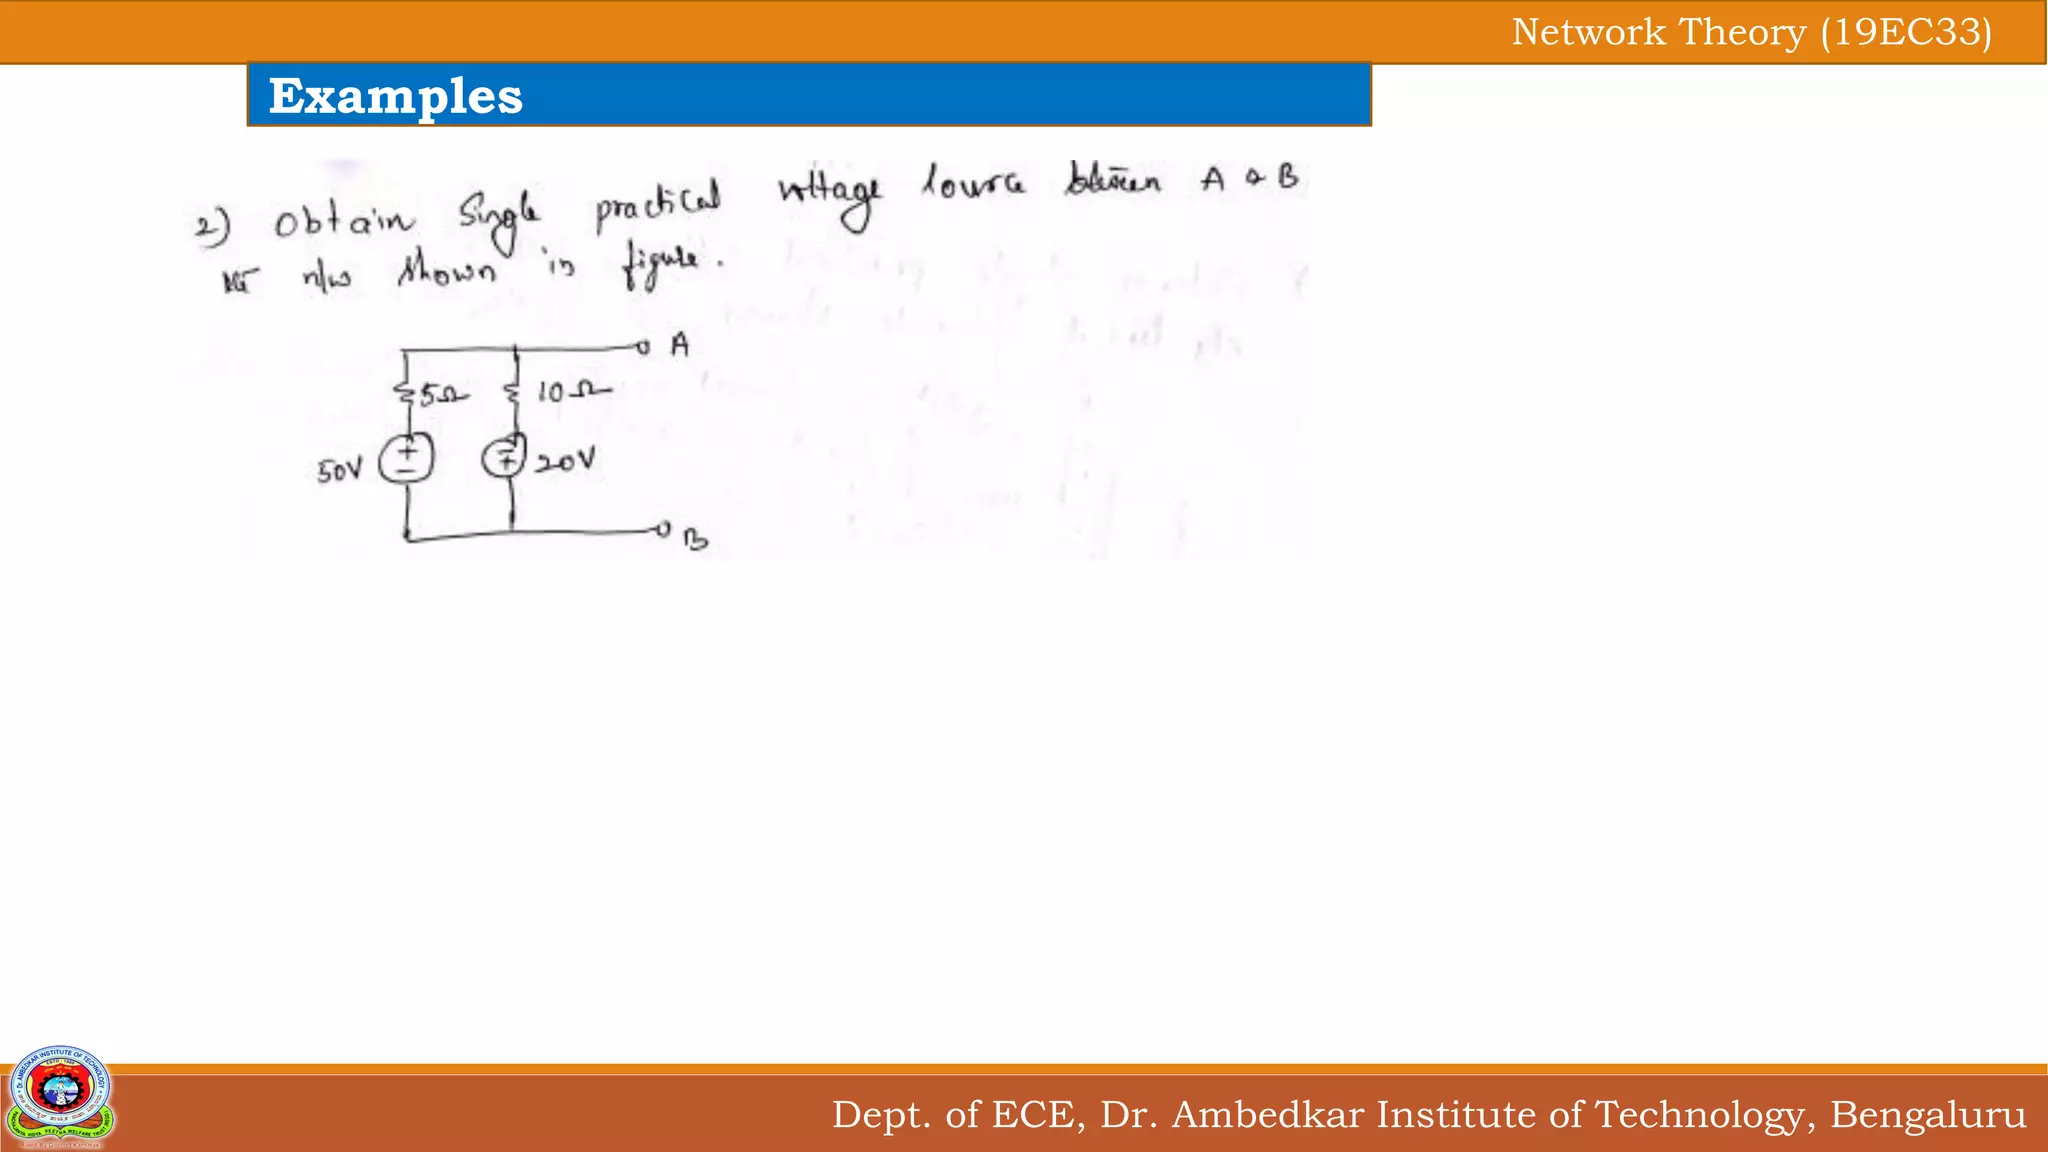 Network Theory (19EC33)
Examples
2) Obtain Single practical voltage source between A & B
n/w shown in figure.
A
5Ω
10Ω
50V
+
−
−
+
20V
B
Dept. of ECE, Dr. Ambedkar Institute of Technology, Bengaluru